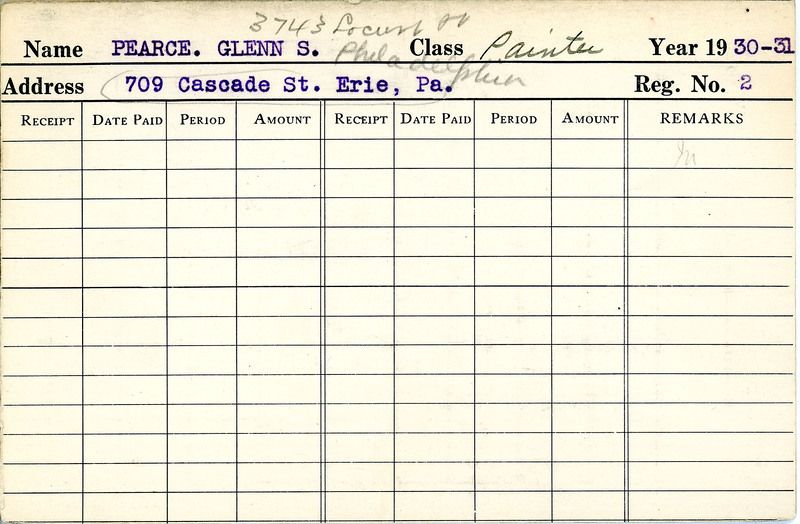 3743 Locust St
Philadelphia
Name PEARCE. GLENN S. Class Painter Year 1930-31
Address 709 Cascade St. Erie, Pa. Reg. No. 2
RECEIPT DATE PAID PERIOD AMOUNT RECEIPT DATE PAID PERIOD AMOUNT REMARKS
In